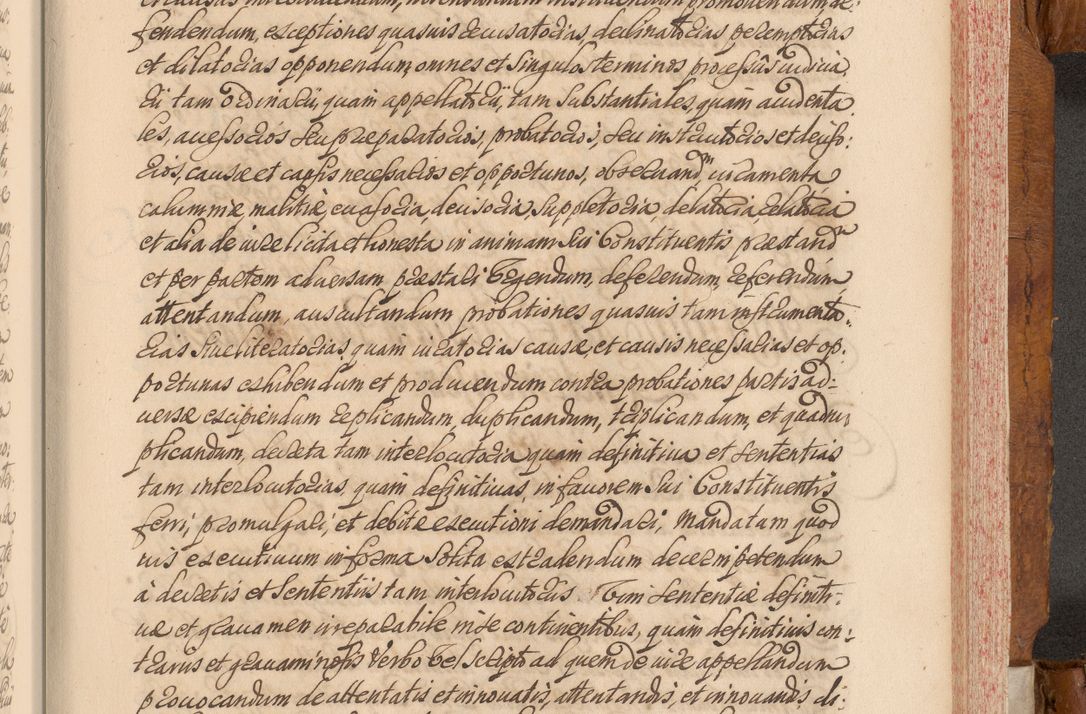 fendendum, exceptiones quasuis recusatorias, declinatorias peremptorias
et dilatorias opponendum, omnes et singulos terminos processus iudicia,
rij tam ordinarij, quam appellatorij, tam substantiales quam accidenta
les, accessorios seu præparatorios, probatorios, seu instructorios et deciso:
rios, causæ et causis necessarios et opportunos, obseruand iuramenta
calumniæ malitiæ, euasoria, decisoria, suppletoria delatoria, relatoria
et alia de iure licita et honesta in animam sui Constituentis præstand
et per partem aduersam præstari Vrgendum, deferendum, referendum
attentandum, auscultandum probationes quasuis tam instrumenta:
rias siue literatorias, quam iuratorias causæ, et causis necessarias et op:
portunas exhibendum et producendum contra probationes partis ad:
uersæ excipiendum replicandum, duplicandum, triplicandum, et quadru
plicandum, decreta tam interlocutoria quam definitiua et sententias
tam interlocutorias, quam definitiuas, in fauorem sui Constituentis
ferri, promulgari, et debite executioni demandari, Mandatum quod
uis executiuum in forma solita extradendum decerni petendum
à decretis et sententiis tam interlocutoriis Vim sententiæ definiti:
uæ et grauamen irreparabile in se continentibus, quam definitiuis con:
trarus et grauaminosis Verbo Vel scripto ad quem de iure appellandum
prouocandum de attentatis et innouatis, attentandis, et innouandis di: